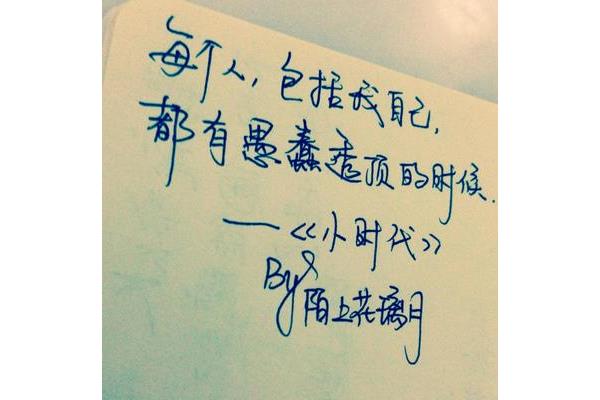 每个人，包括我自己，
都有愚蠢透顶的时候.
——《小时代》
By
陌上花璃月